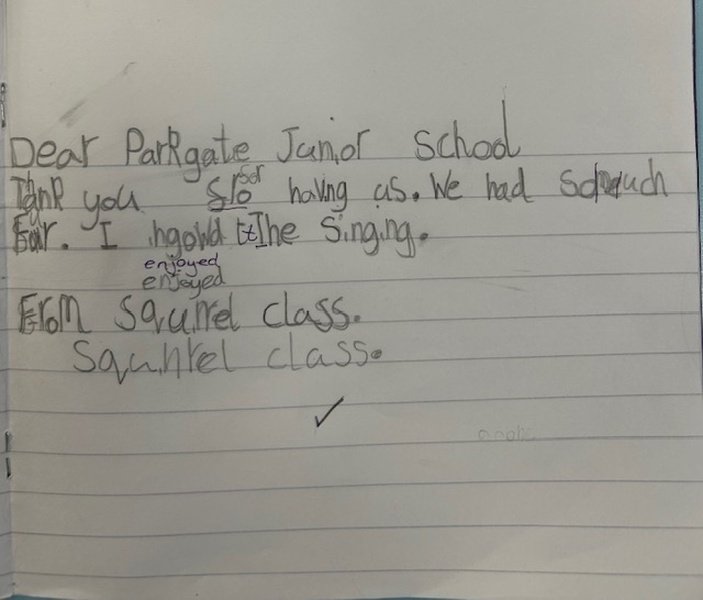 Dear Parkgate Junior School
Tank you having us. We had
I ingowd the Singing.
enjoyed
enjoyed
From Squirrel class.
Squirrel class.